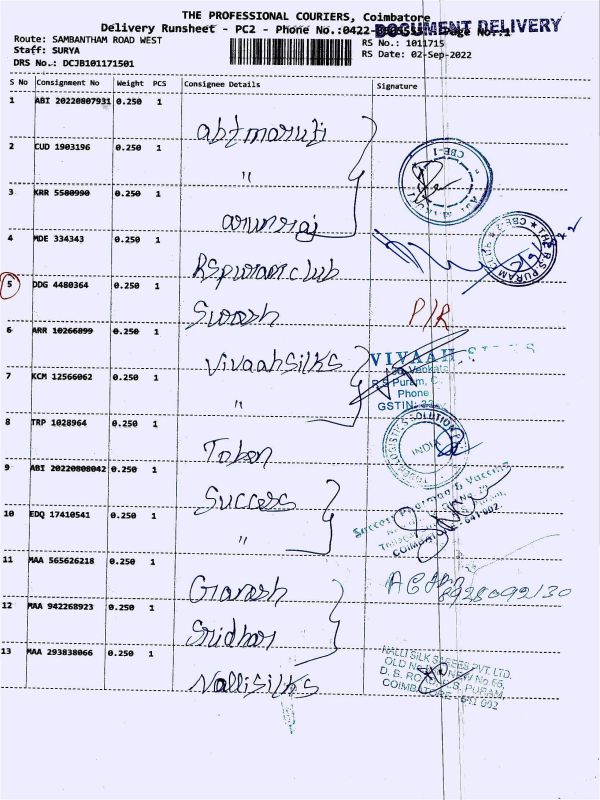 THE PROFESSIONAL COURIERS, Coimbatore
Delivery Runsheet - PC2 - Phone No.:0422- Page No.:1
DOCUMENT DELIVERY
Route: SAMBANTHAM ROAD WEST
RS No.: 1011715
Staff: SURYA
RS Date: 02-Sep-2022
DRS No.: DCJB101171501
S No Consignment No Weight PCS Consignee Details Signature
1 ABI 20220807931 0.250 1 abtmaruti
2 CUD 1903196 0.250 1 "
CBE-1
3 KRR 5580990 0.250 1 arunraj
4 MDE 334343 0.250 1 RSpuram club
THE R.S. PURAM CLUB ★ CBE-2 ★
5 DDG 4480364 0.250 1 Suresh P/R
6 ARR 10266899 0.250 1 Vivaahsilks
VIVAAH SILKS
Venkata
R.S Puram, C
Phone
GSTIN: 33
7 KCM 12566062 0.250 1 "
8 TRP 1028964 0.250 1 Token
LOGISTICS SOLUTION
INDIA
9 ABI 20220808042 0.250 1 Success
Success & Vaccine
COIMBATORE 641 002.
10 EDQ 17410541 0.250 1 "
11 MAA 565626218 0.250 1 Ganesh
8928092130
12 MAA 942268923 0.250 1 Sridhar
13 MAA 293838066 0.250 1 Nallisilks
NALLI SILK SAREES PVT. LTD.
OLD No. NEW No.65,
D. B. ROAD, R.S. PURAM,
COIMBATORE - 641 002